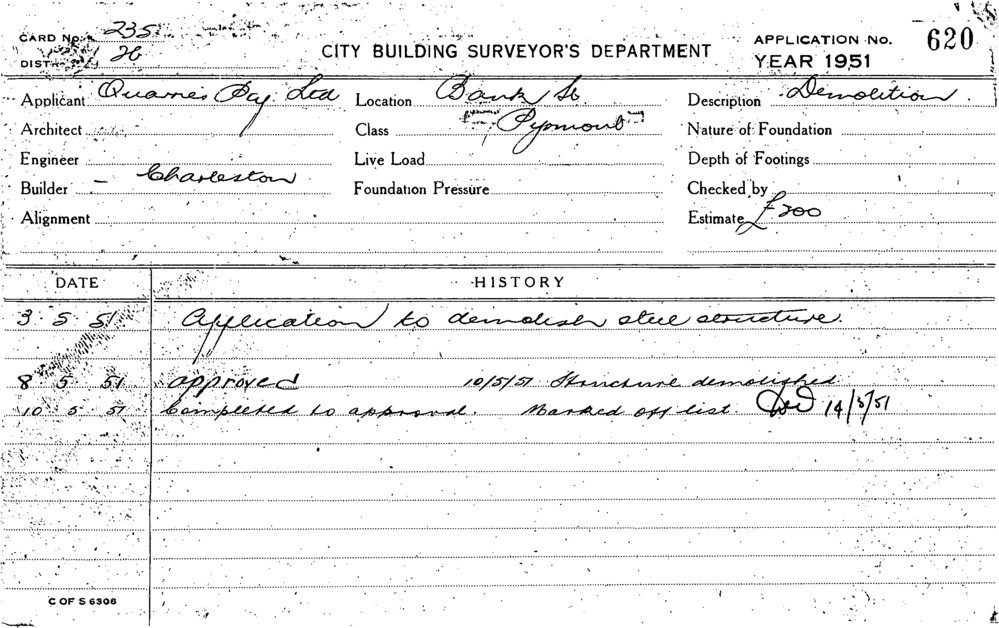 CARD No. 235
DIST. 26
CITY BUILDING SURVEYOR'S DEPARTMENT
APPLICATION No. 620
YEAR 1951
Applicant Quarries Pty. Ltd Location Bank St Description Demolition
Architect Class Pyrmont Nature of Foundation
Engineer Live Load Depth of Footings
Builder – Charleston Foundation Pressure Checked by
Alignment Estimate £200
DATE HISTORY
3 5 51 Application to demolish steel structure.
8 5 51 approved 10/5/51 Structure demolished
10 5 51 Completed to approval. Marked off list. 14/5/51
C OF S 6308